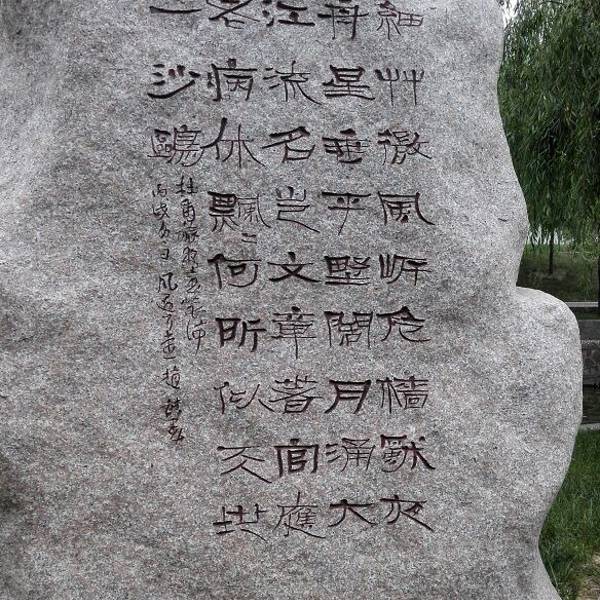 細艸微風岸危檣獨夜
舟星垂平野闊月涌大
江流名豈文章著官應
老病休飄〻何所似天地
一沙鷗
杜甫旅夜書懷
丙戌夏日